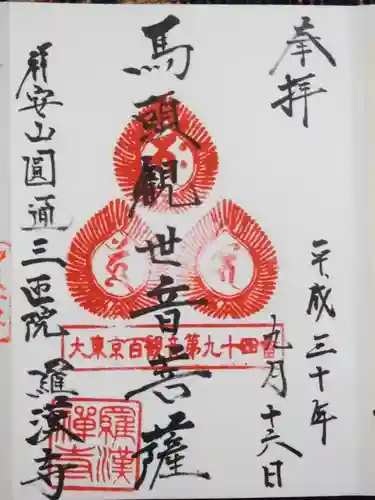 奉拝
平成三十年
九月十六日
馬頭観世音菩薩
大東京百観音第九十四番
祥安山圓通三匝院
羅漢寺
羅漢
禅寺